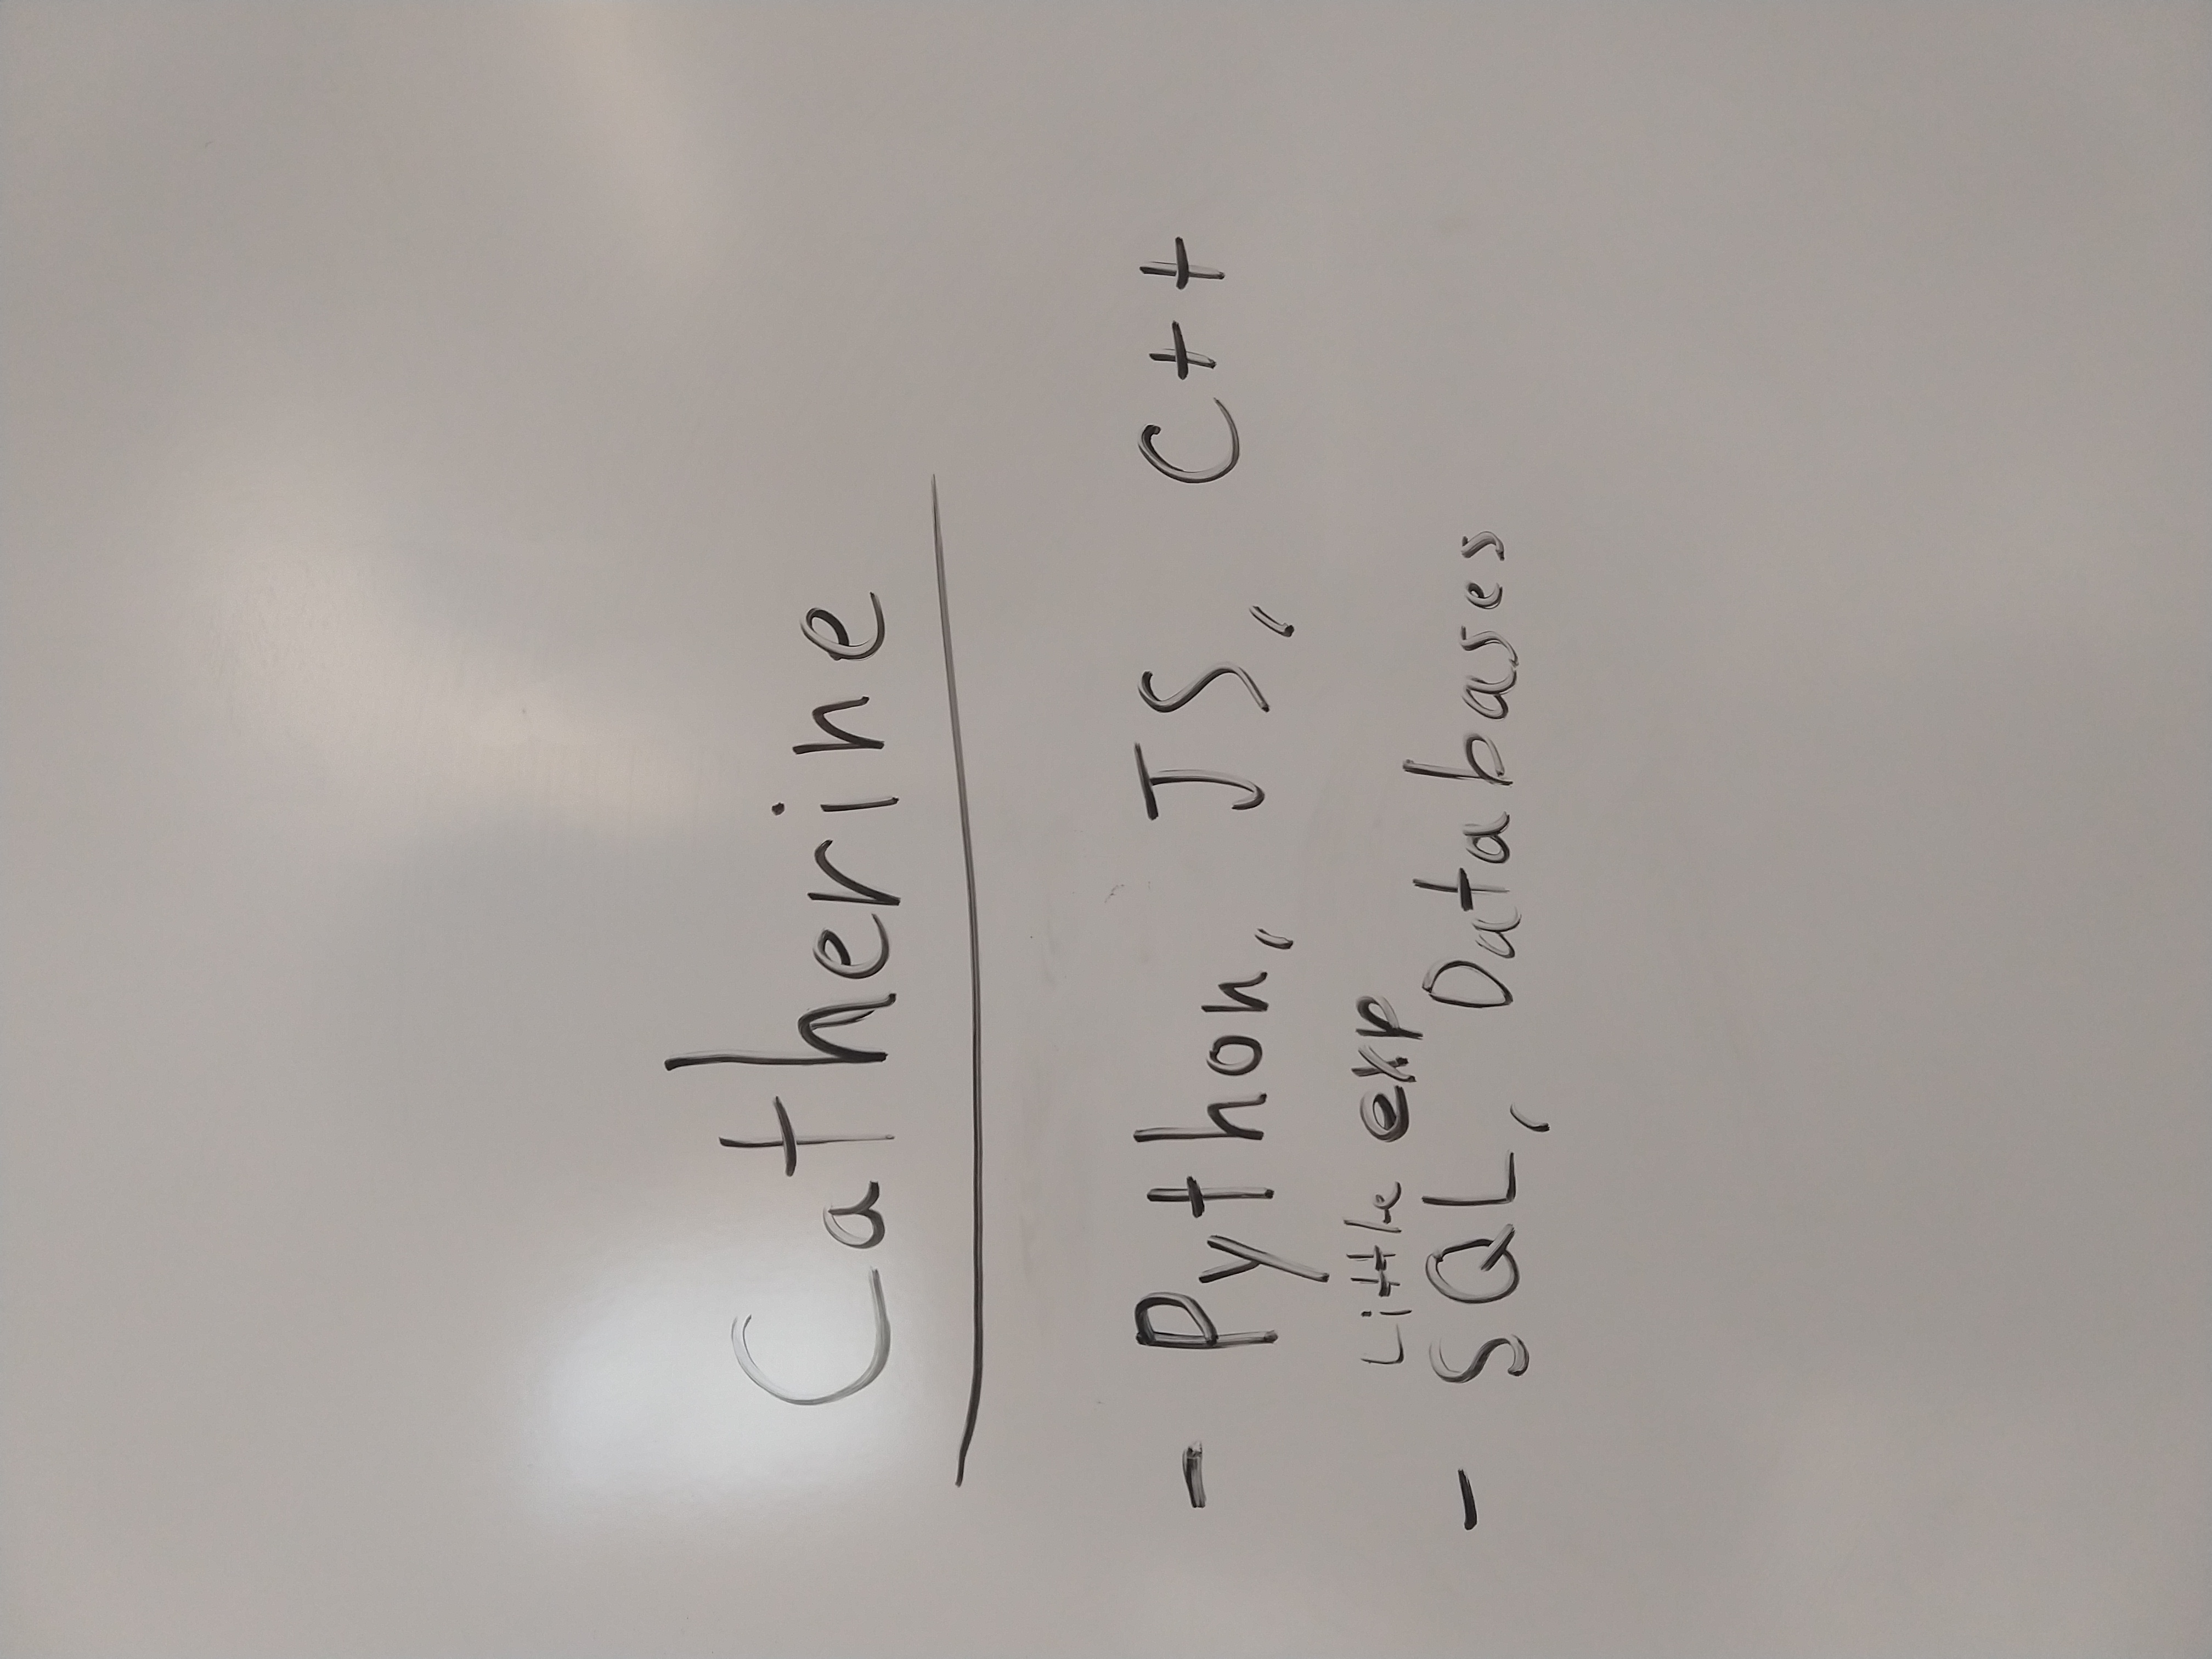 Catherine
- Python, JS, C++
Little exp
- SQL, Databases